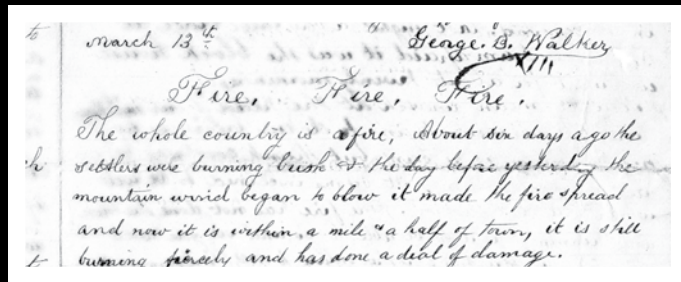 March 13th George. B. Walker
VIII
Fire, Fire, Fire.
The whole country is a fire, About six days ago the
settlers were burning bush & the day before yesterday the
mountain wind began to blow it made the fire spread
and now it is within a mile & a half of town, it is still
burning fiercely and has done a deal of damage.